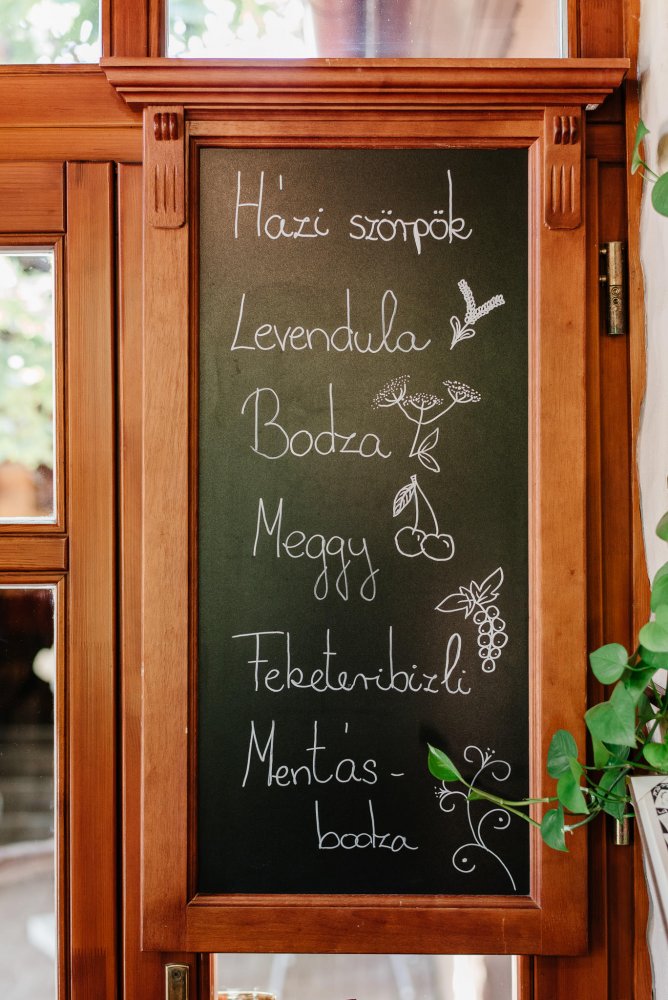 Házi szörpök
Levendula
Bodza
Meggy
Feketeribizli
Mentás-
bodza